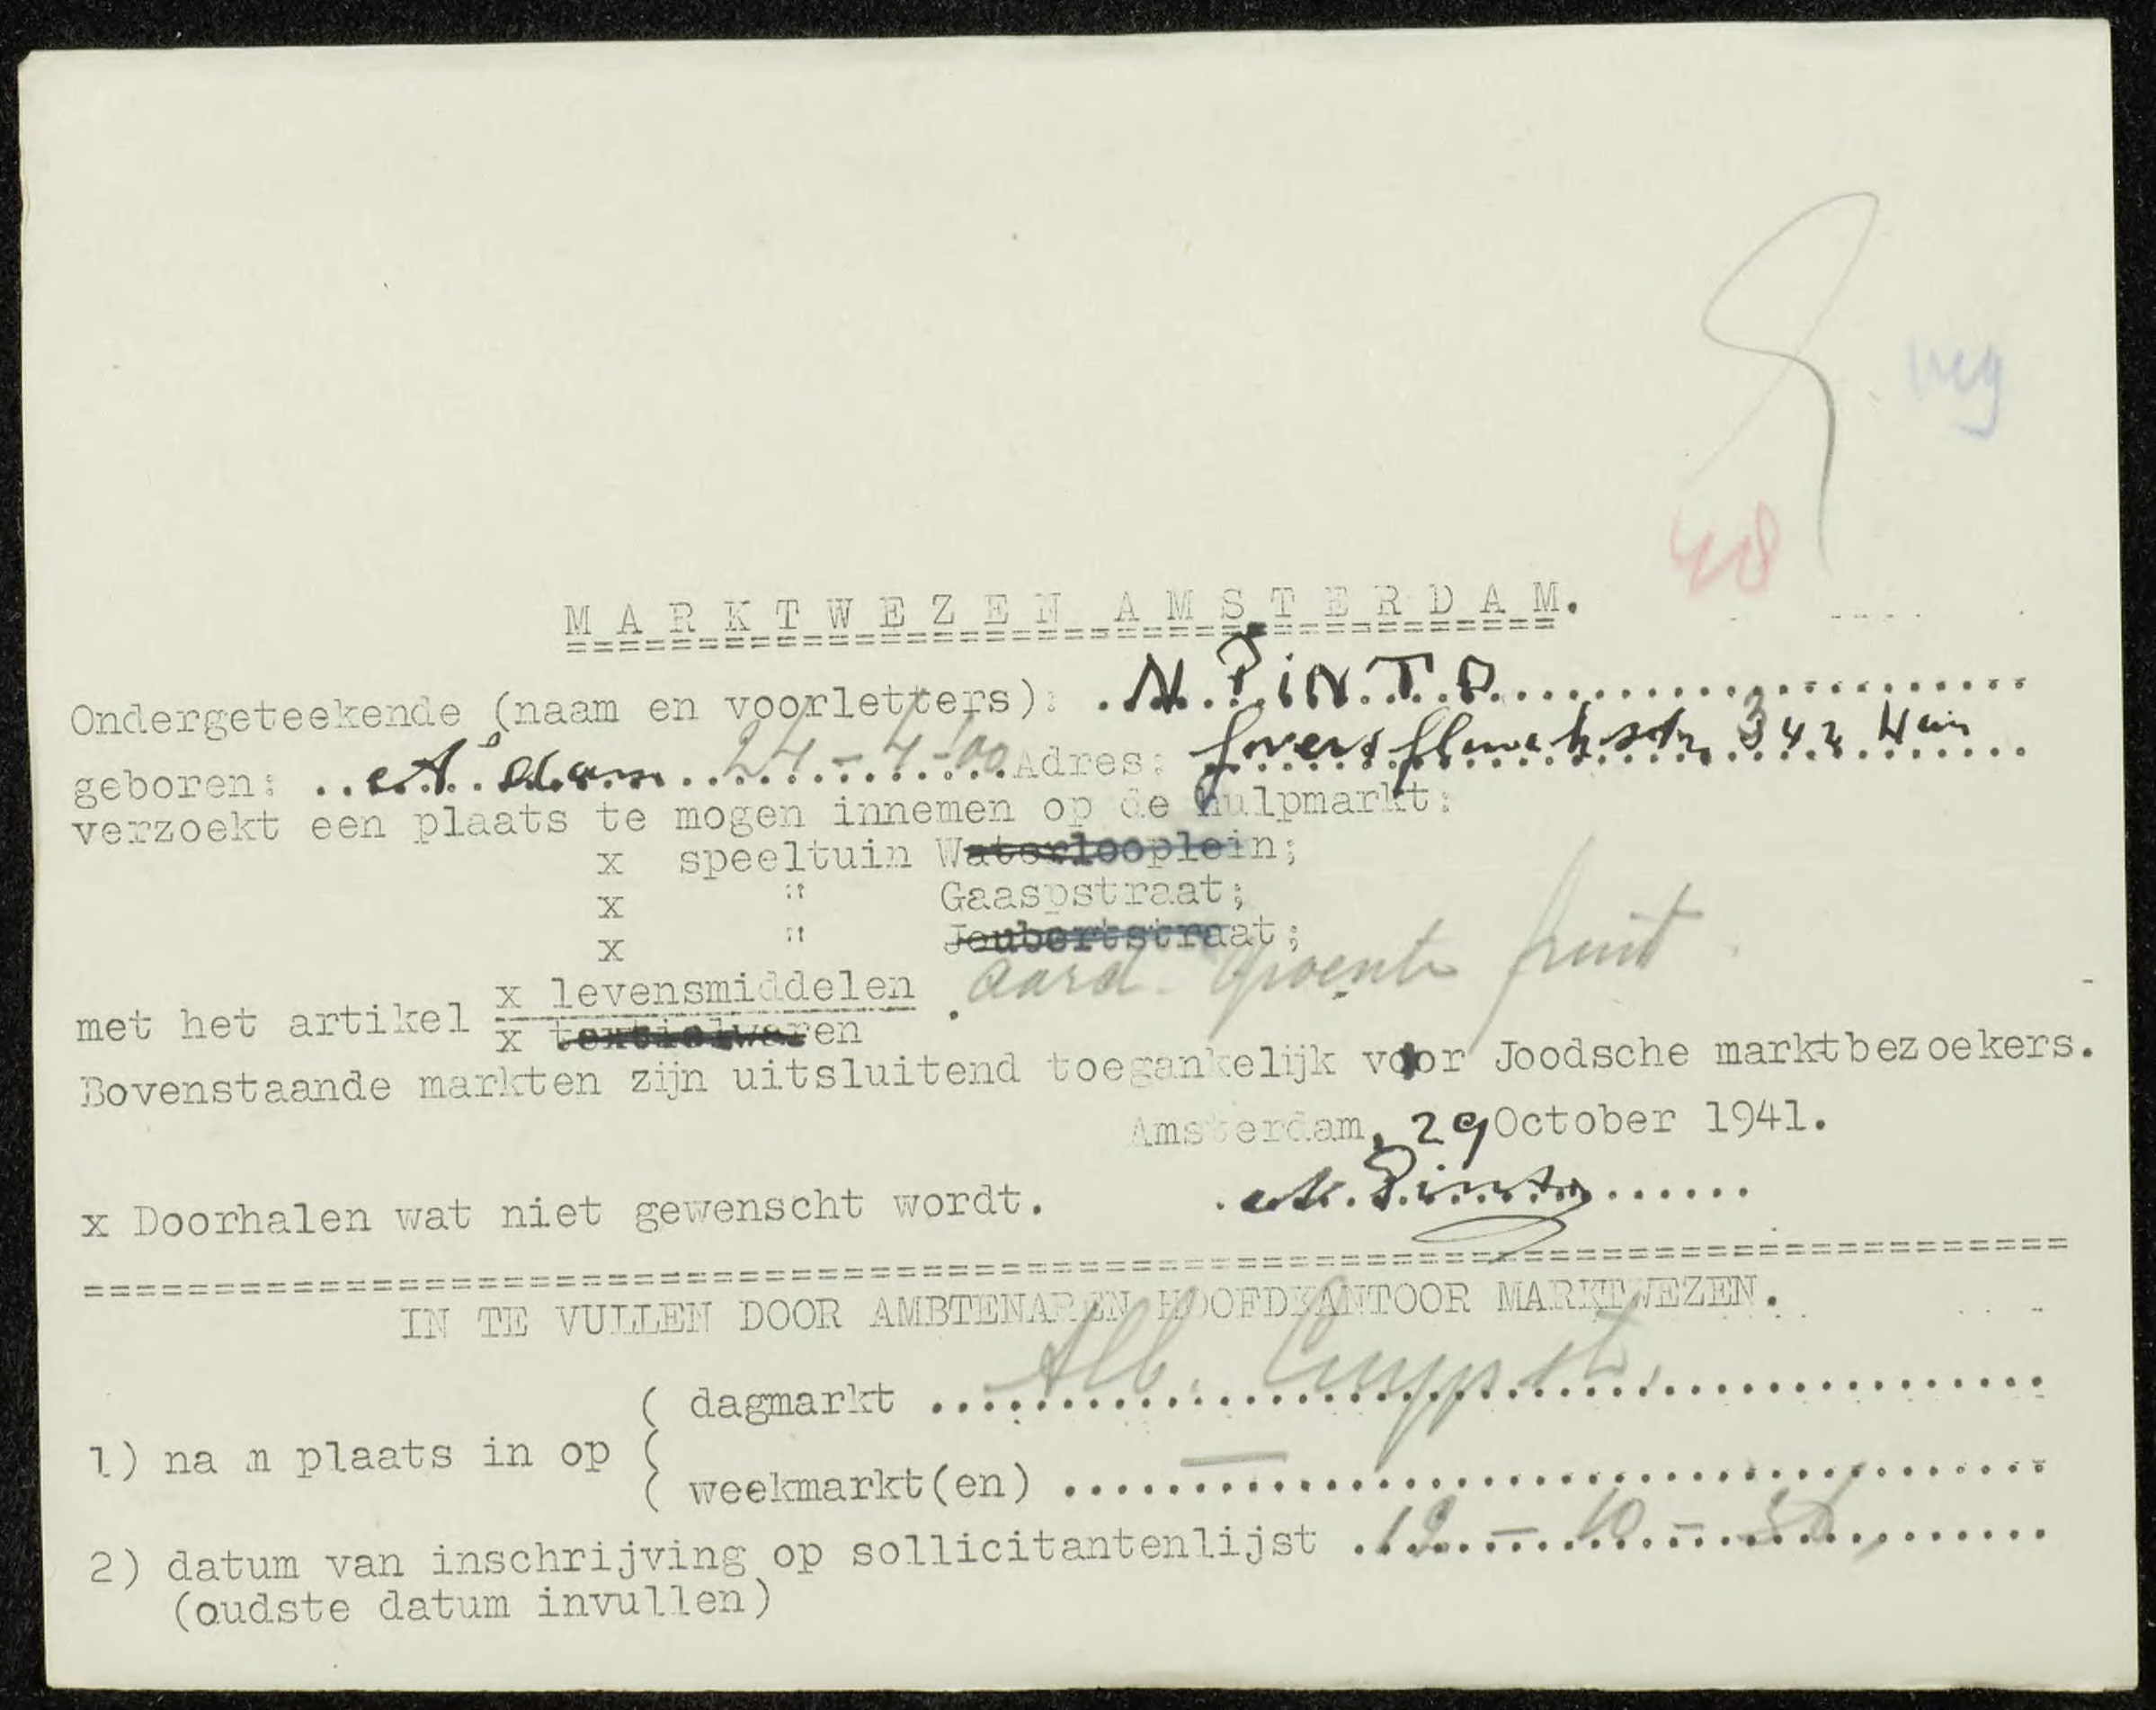 weg
48
MARKTWEZEN AMSTERDAM.
Ondergeteekende (naam en voorletters): . N. PiNTO
geboren: .. A'dam 24-4-'00 Adres: 342 Huis
verzoekt een plaats te mogen innemen op de hulpmarkt:
x speeltuin Waterlooplein;
x " Gaaspstraat;
x " Joubertstraat;
met het artikel x levensmiddelen . aard. groente fruit
x textielwaren
Bovenstaande markten zijn uitsluitend toegankelijk voor Joodsche marktbezoekers.
Amsterdam, 29 October 1941.
x Doorhalen wat niet gewenscht wordt. . N. Pinto
IN TE VULLEN DOOR AMBTENAREN HOOFDKANTOOR MARKTWEZEN.
( dagmarkt Alb. Cuypstr.
1) nam plaats in op (
( weekmarkt(en) —
2) datum van inschrijving op sollicitantenlijst 19-10-36
(oudste datum invullen)